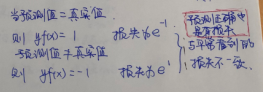 当预测值=真实值
则 yf(x)=1 损失为e⁻¹
当预测值≠真实值
则 yf(x)=-1 损失为e¹
预测正确中
是有损失
与平常看到的
损失不一致.